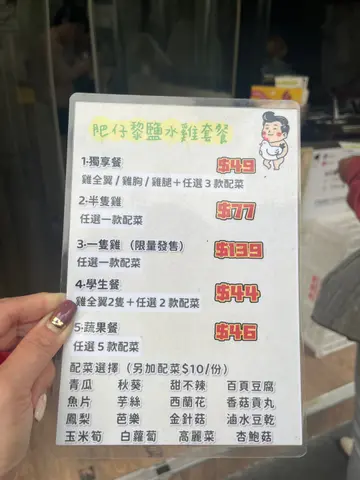 肥仔黎鹽水雞套餐
1·獨享餐 $49
雞全翼/雞胸/雞腿+任選3款配菜
2·半隻雞 $77
任選一款配菜
3·一隻雞（限量發售） $139
任選一款配菜
4·學生餐 $44
雞全翼2隻+任選2款配菜
5·蔬果餐 $46
任選5款配菜
配菜選擇（另加配菜$10/份）
青瓜 秋葵 甜不辣 百頁豆腐
魚片 芋絲 西蘭花 香菇貢丸
鳳梨 芭樂 金針菇 滷水豆乾
玉米筍 白蘿蔔 高麗菜 杏鮑菇